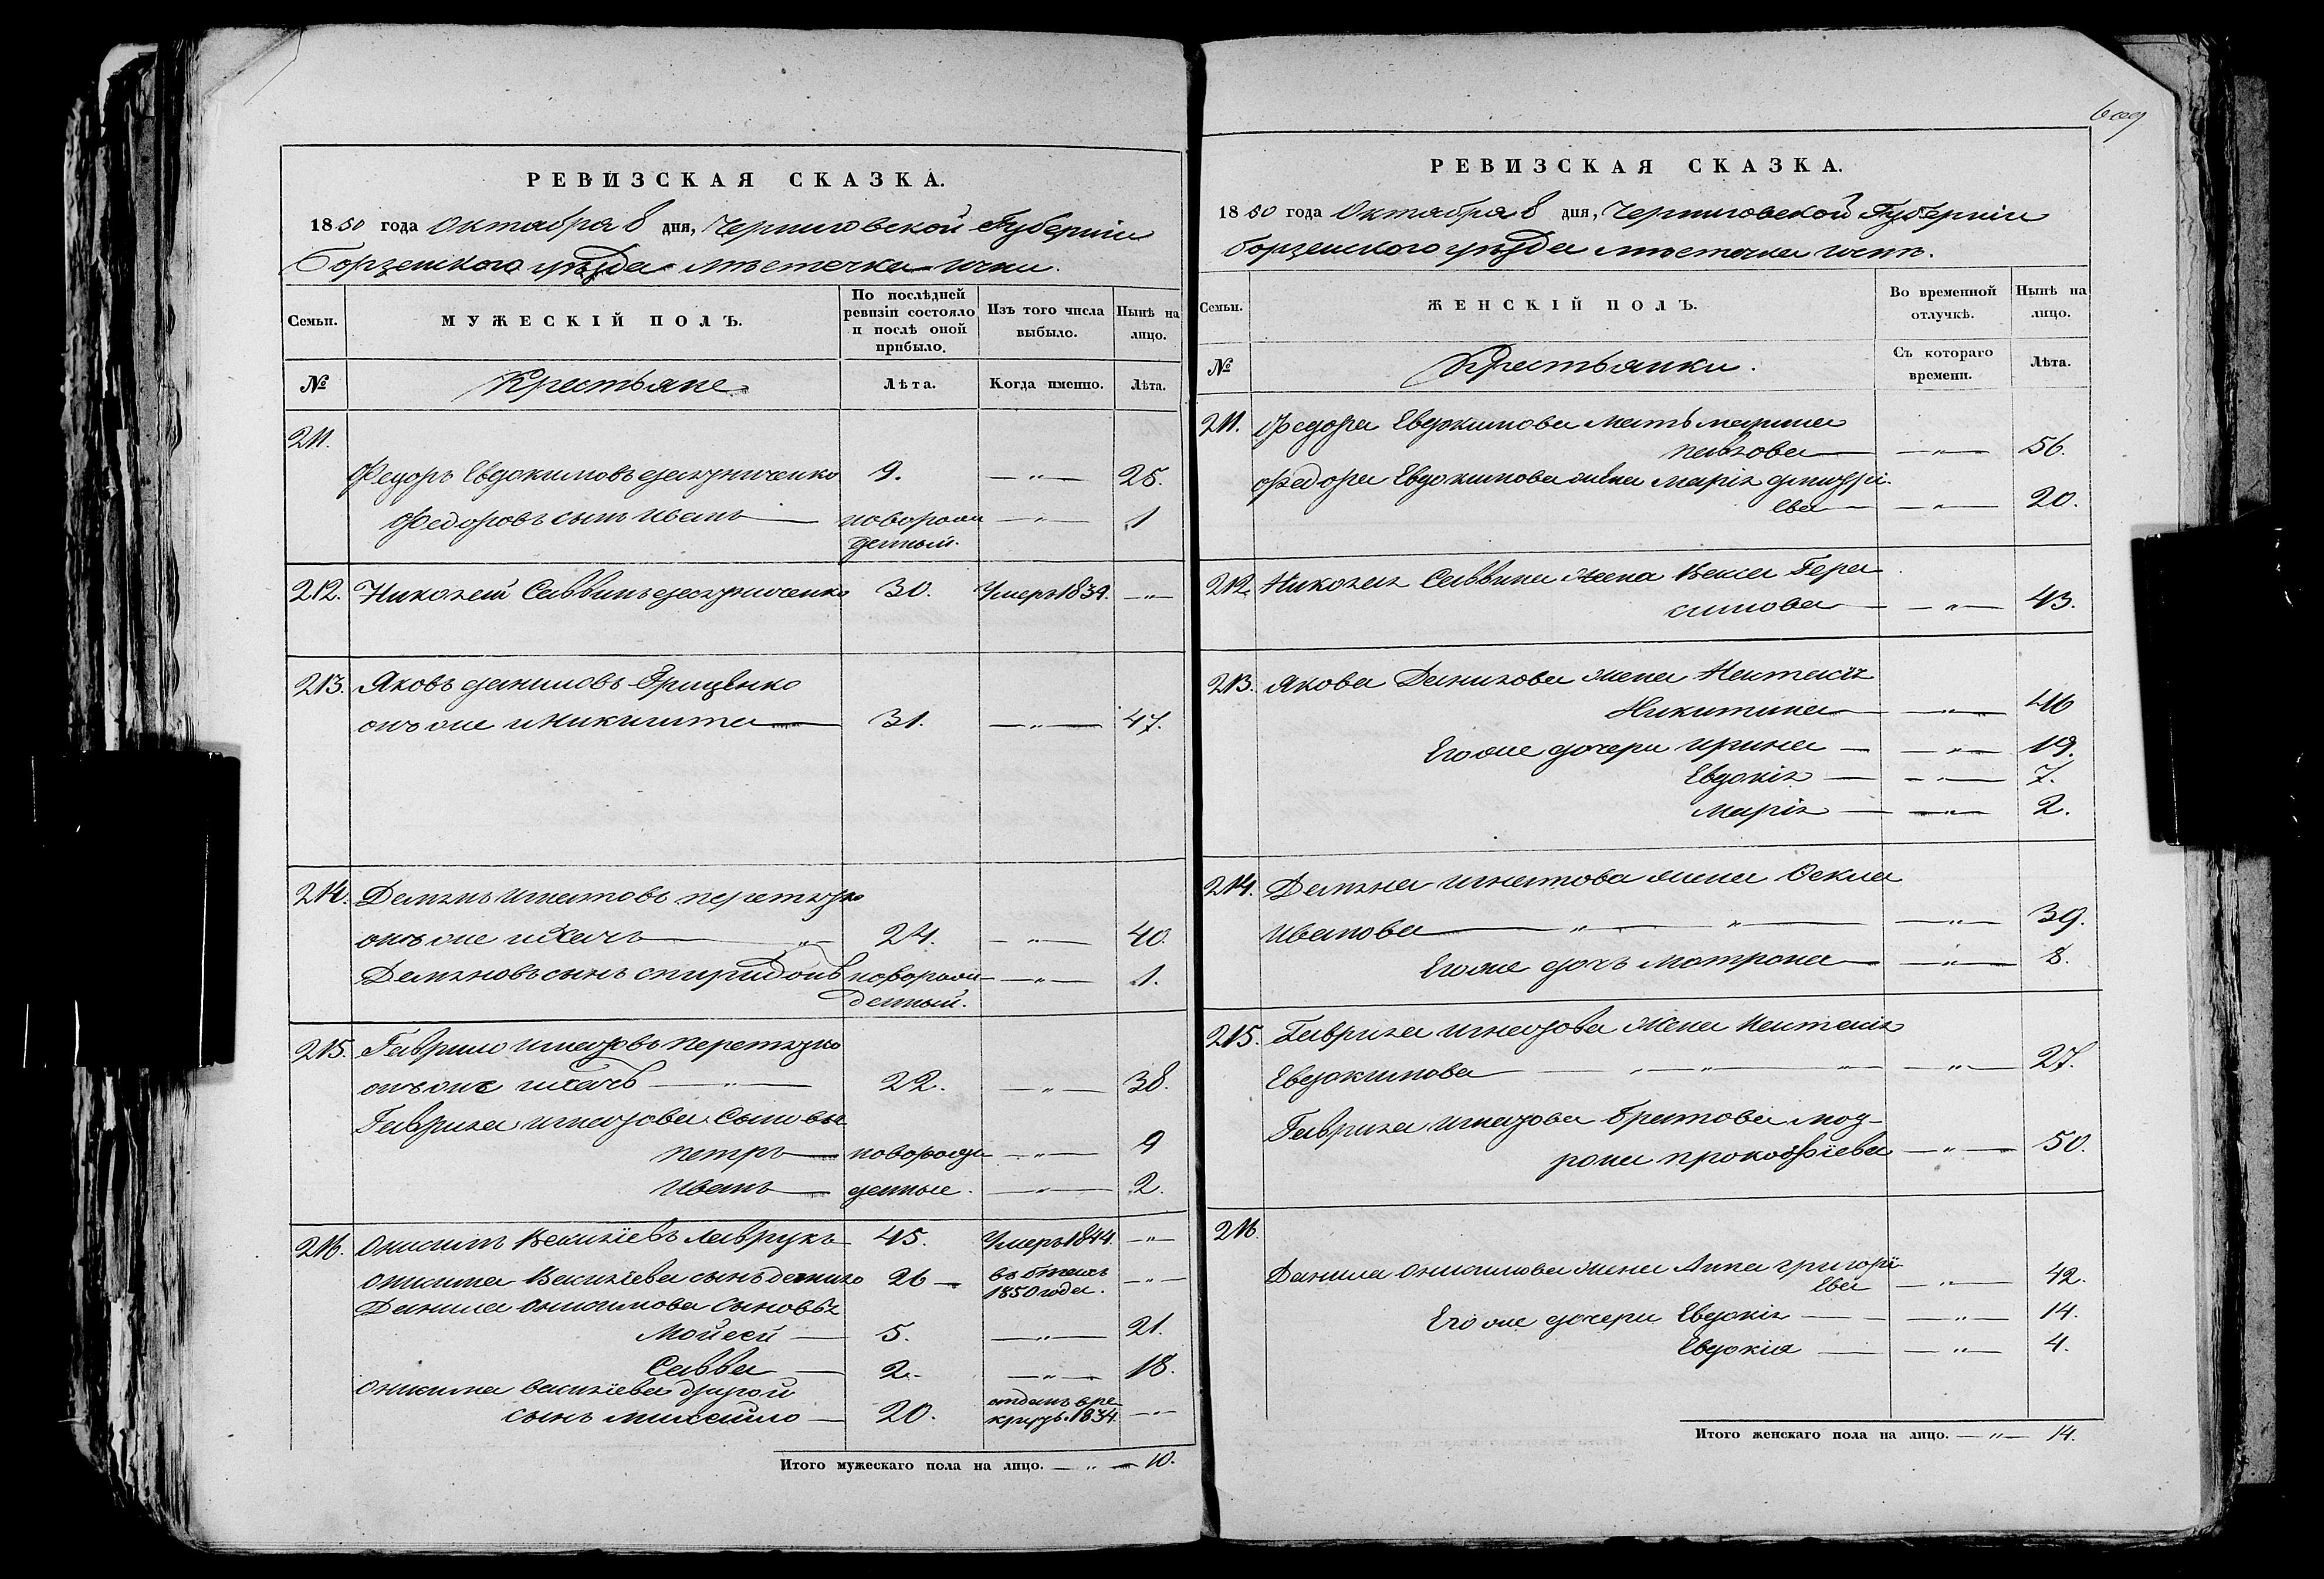 РЕВИЗСКАЯ СКАЗКА.
1850 года Октября 8 дня, Черниговской Губерніи
Борзенского уѣзда мѣстечка Ични.
Семьи.
МУЖЕСКІЙ ПОЛЪ.
По послѣдней ревизіи состояло и послѣ оной прибыло.
Изъ того числа выбыло.
Нынѣ на лицо.
№ Крестьяне Лѣта. Когда именно. Лѣта.
211.
Федоръ Евдокимовъ 9. — " — 25.
Федоровъ сынъ Иванъ — новорож — " — 1
денный.
212. Николай Саввинъ 30. Умеръ 1839. — " —
213. Яковъ Даниловъ Гриценко
онъ же и Никишта — 31. — " — 47.
214. Демянъ Игнатовъ Перетятко
онъ же и Ткачъ — " — 24. — " — 40.
Демяновъ сынъ Спиридонъ новорож — " — 1.
денный.
215. Гаврило Игнатовъ Перетятко
онъ же и Ткачъ — " — 22. — " — 38.
Гаврила Игнатова Сыновья
Петръ — новорожд — " — 9
Иванъ — денные. — " — 2.
216. Онисимъ Василіевъ Лаврукъ 45. Умеръ 1844. — " —
Онисима Василіева сынъ Данило 26 — въ бѣгахъ — " —
1850 года.
Данила Онисимова Сыновья
Мойсей — 5. — " — 21.
Савва — 2. — " — 18.
Онисима Василіева другой
сынъ Михайло — 20. отданъ въ ре — " —
круты 1834.
Итого мужескаго пола на лицо. — " — 10.
609
РЕВИЗСКАЯ СКАЗКА.
1850 года Октября 8 дня, Черниговской Губерніи
Борзенского уѣзда мѣстечка Ични.
Семьи.
ЖЕНСКІЙ ПОЛЪ.
Во временной отлучкѣ.
Нынѣ на лицо.
№ Крестьянки. Съ котораго времени. Лѣта.
211. Федора Евдокимова Мать Марина
Павлова — — " — 56.
Федора Евдокимова жена Марія Дмитрі
ева — — " — 20.
212. Николая Саввина жена Векла Гера
симова — — " — 43.
213. Якова Данилова жена Настасія
Никитина — — " — 46
Егоже дочери Ирина — — " — 19.
Евдокія — — " — 7.
Марія — — " — 2.
214. Демяна Игнатова жена Векла
Иванова — " — " — — " — 39.
Егоже дочь Мотрона — — " — 8.
215. Гаврила Игнатова Жена Настасія
Евдокимова — " — " — " — — " — 27.
Гаврила Игнатова братова
Прокофіева — " — 50.
216.
Данила Онисимова жена Анна Григорі
ева — " — 42.
Егоже дочери Евдокія — — " — 14.
Евдокія — — " — 4.
Итого женскаго пола на лицо. — " — 14.